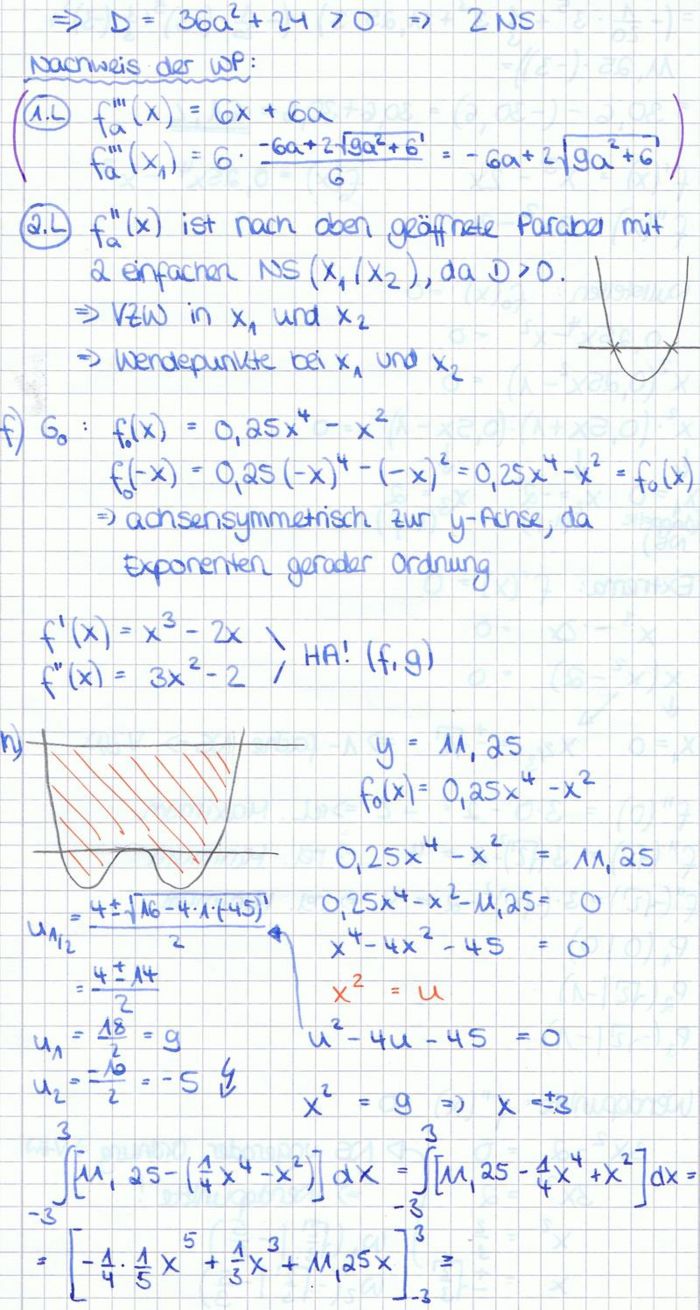 ⇒ D = 36a² + 24 > 0 ⇒ 2 NS
Nachweis der WP:
1.L fₐ'''(x) = 6x + 6a
fₐ'''(x₁) = 6 · (-6a + 2√(9a² + 6))/6 = -6a + 2√(9a² + 6)
2.L fₐ''(x) ist nach oben geöffnete Parabel mit
2 einfachen NS (x₁/x₂), da D > 0.
⇒ VZW in x₁ und x₂
⇒ Wendepunkte bei x₁ und x₂
f) G₀ : f₀(x) = 0,25x⁴ - x²
f₀(-x) = 0,25(-x)⁴ - (-x)² = 0,25x⁴ - x² = f₀(x)
⇒ achsensymmetrisch zur y-Achse, da
Exponenten gerader Ordnung
f'(x) = x³ - 2x
f''(x) = 3x² - 2
HA! (f, g)
h)
y = 11,25
f₀(x) = 0,25x⁴ - x²
0,25x⁴ - x² = 11,25
0,25x⁴ - x² - 11,25 = 0
x⁴ - 4x² - 45 = 0
x² = u
u² - 4u - 45 = 0
u₁/₂ = (4 ± √(16 - 4·1·(-45)))/2
= (4 ± 14)/2
u₁ = 18/2 = 9
u₂ = -10/2 = -5 ↯
x² = 9 ⇒ x = ±3
∫₋₃³ [11,25 - (1/4 x⁴ - x²)] dx = ∫₋₃³ [11,25 - 1/4 x⁴ + x²] dx =
= [-1/4 · 1/5 x⁵ + 1/3 x³ + 11,25x]₋₃³ =